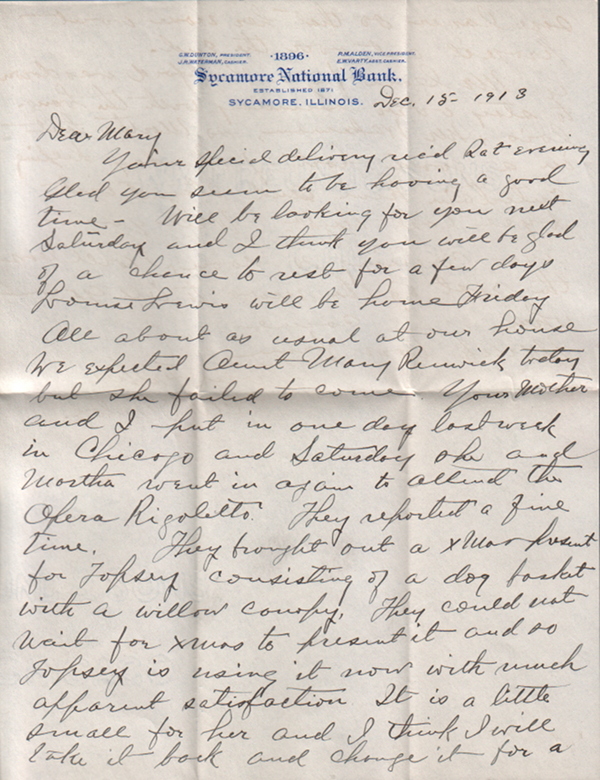 G.W. DUNTON, PRESIDENT. ·1896· P.M. ALDEN, VICE PRESIDENT.
J.A. WATERMAN, CASHIER. E.W. VARTY, ASST. CASHIER.
Sycamore National Bank.
ESTABLISHED 1871
SYCAMORE, ILLINOIS. Dec. 15- 1913
Dear Mary
Your special delivery rec'd Sat evening
Glad you seem to be having a good
time - Will be looking for you next
Saturday and I think you will be glad
of a chance to rest for a few days
Louise Lewis will be home Friday
All about as usual at our house
We expected Aunt Mary Renwick today
but she failed to come. Your Mother
and I put in one day last week
in Chicago and Saturday she and
Martha went in again to attend the
Opera Rigoletto. They reported a fine
time. They brought out a xmas present
for Topsey consisting of a dog basket
with a willow canopy. They could not
wait for xmas to present it and so
Topsey is using it now with much
apparent satisfaction It is a little
small for her and I think I will
take it back and change it for a